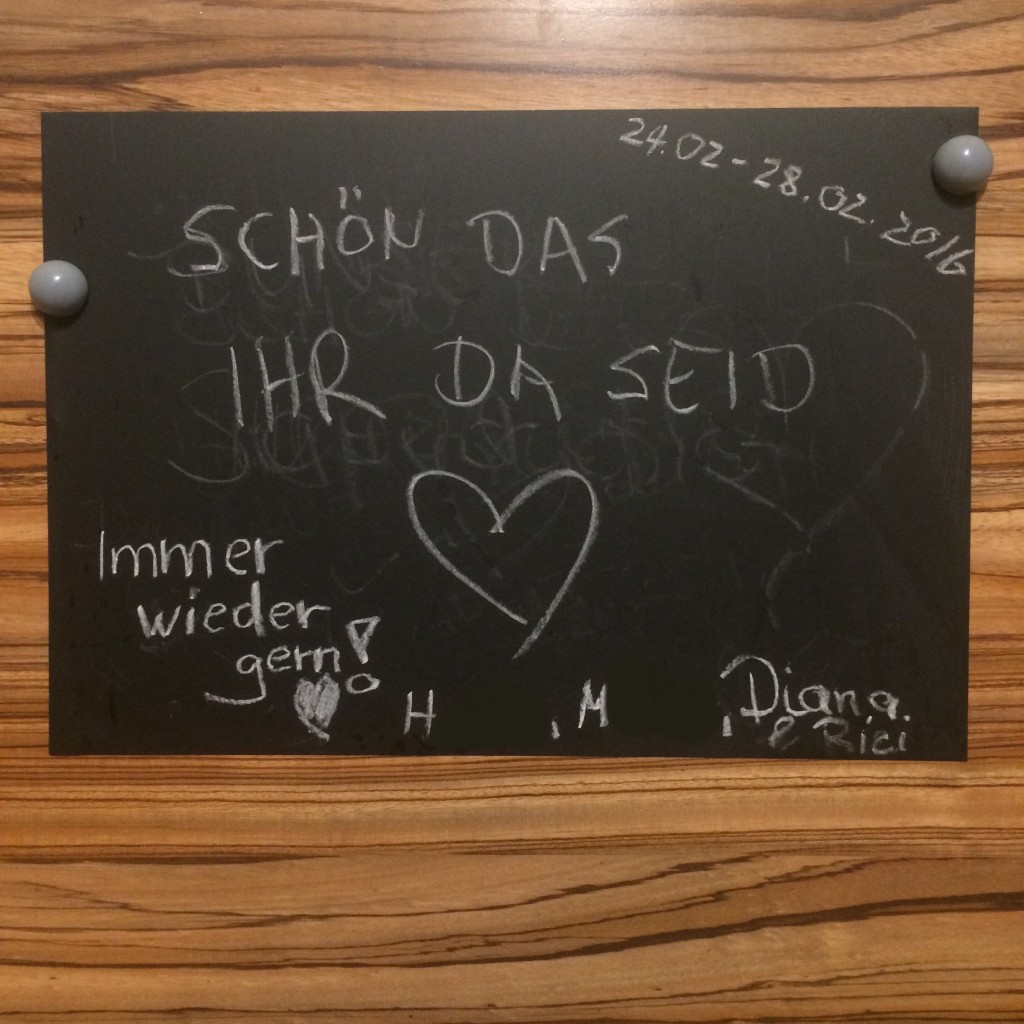 24.02 - 28.02.2016
SCHÖN DAS
IHR DA SEID
Immer
wieder
gern!
H , M , Diana
& Rici